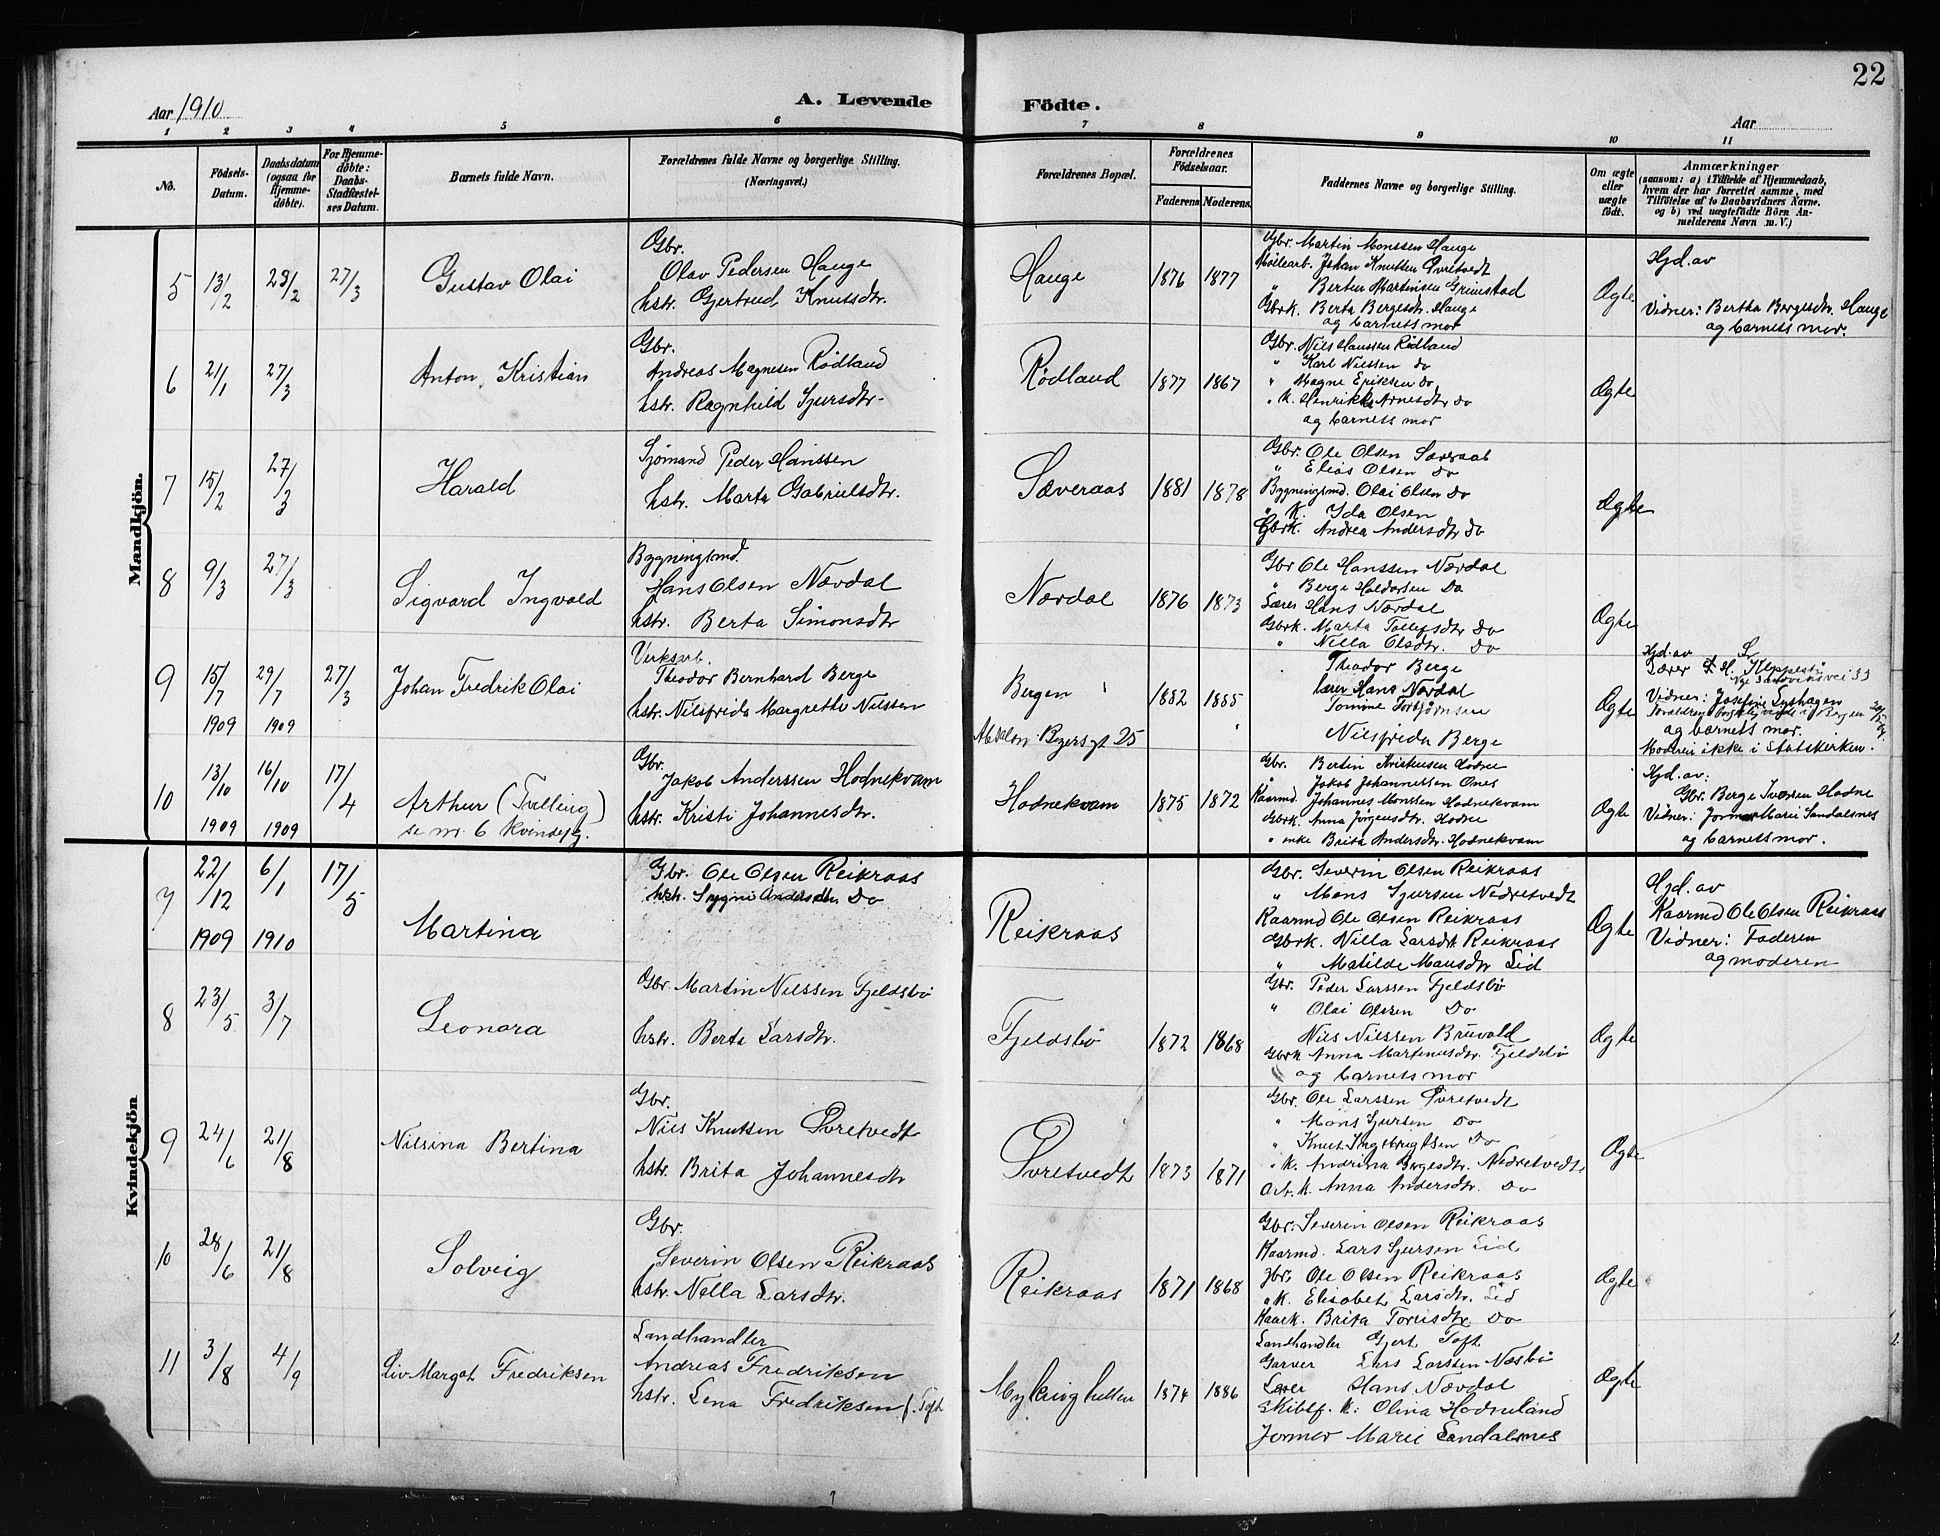 22
Aar 1910
A. Levende Födte.
Aar
1 2 3 4 5 6 7 8 9 10 11
No.
Födsels-Datum.
Daabsdatum (ogsaa for Hjemme-döbte).
For Hjemme-döbte: Daabs-Stadfæstel-ses Datum.
Barnets fulde Navn.
Forældrenes fulde Navne og borgerlige Stilling. (Næringsvei.)
Forældrenes Bopæl.
Forældrenes Födselsaar.
Faderens Moderens.
Faddernes Navne og borgerlige Stilling.
Om ægte eller uægte födt.
Anmærkninger
(saasom: a) i Tilfælde af Hjemmedaab, hvem der har forrettet samme, med Tilföielse af to Daabsvidners Navne. og b) ved uægtefödte Börn An-melderens Navn m. V.)
Mandkjön.
5 13/2 23/2 27/3 Gustav Olai
Gbr.
Olav Pedersen Hauge
hstr. Gjertrud Knutsdtr.
Hauge 1876 1877
Gbr. Martin Monssen Hauge
Møllearb. Johan Knutsen Øvretvedt
" Berten Martinsen Grimstad
Gbrk. Berta Bergesdtr. Hauge
og barnets mor
Ægte
Hjd. av
Vidner: Bertha Bergesdtr Hauge
og barnets mor.
6 21/1 27/3 Anton Kristian
Gbr.
Andreas Magnesen Rødland
hstr. Ragnhild Sjursdtr.
Rødland 1877 1867
Gbr. Nils Hanssen Rødland
" Karl Nilssen do
" Magne Eriksen do
" K. Henrikke Arnesdtr do
og barnets mor
Ægte
7 15/2 27/3 Harald
Sjømand Peder Hanssen
hstr. Marta Gabrielsdtr.
Sæveraas 1881 1878
Gbr. Ole Olsen Sæveraas
" Elias Olsen do
Bygningsmd. Olai Olsen do
" K. Ida Olsen
Gbrk. Andrea Andersdtr do
Ægte
8 9/3 27/3 Sigvard Ingvald
Bygningsmd.
Hans Olsen Nævdal
hstr. Berta Simonsdtr
Nævdal 1876 1873
Gbr Ole Hanssen Nævdal
" Berge Haldorsen Do
Lærer Hans Nævdal
Gbrk. Marta Tollefsdtr Do
" Nilla Olsdtr. Do
Ægte
9 15/7 1909 29/7 1909 27/3 Johan Fredrik Olai
Verksarb.
Theodor Bernhard Berge
hstr. Nilsfrida Margrethe Nilssen
Bergen 1882 1885
Absalon Beyersgt 25
Theodor Berge
Lærer Hans Nævdal
Nilsfrida Berge
Ægte
Hjd. av
Vidner: Josefine
og barnets mor.
Moderen ikke i Statskirken.
10 13/10 1909 16/10 1909 17/4 Arthur (Tvilling)
se nr. 6 kvindekj.
Gbr.
Jakob Anderssen Hodnekvam
hstr. Kristi Johannesdtr.
Hodnekvam 1875 1872
Gbr. Bertin Kristensen Hodne
" Jakob Johannessen Ones
Kaarmd. Johannes Monssen Hodnekvam
Gbrk. Anna Jørgensdtr. Hodne
" enke Brita Andersdtr. Hodnekvam
Ægte
Hjd. av:
Gbr. Berge Iversen Hodne
Vidner: Jormor Marie Sandalsnes
og barnets mor.
Kvindekjön
7 22/12 1909 6/1 1910 17/5 Martina
Gbr. Ole Olsen Reikraas
hstr. Sygni Andersdtr Do
Reikraas
Gbr. Severin Olsen Reikraas
" Mons Sjursen Nedretvedt
Kaarmd Ole Olsen Reikraas
Gbrk. Nilla Larsdtr Reikraas
" Matilde Monsdtr Lid
Ægte
Hjd. av
Kaarmd Ole Olsen Reikraas
Vidner: Faderen
og moderen
8 23/5 3/7 Leonora
Gbr. Martin Nilssen Fjeldsbø
hstr. Berta Larsdtr.
Fjeldsbø 1872 1868
Gbr. Peder Larssen Fjeldsbø
" Olai Olsen Do
Nils Nilssen Bruvold
Gbrk Anna Martinusdtr. Fjeldsbø
og barnets mor
Ægte
9 24/6 21/8 Nilsina Bertina
Gbr.
Nils Knutsen Øvretvedt
hstr. Brita Johannesdtr
Øvretvedt 1873 1871
Gbr. Ole Larssen Øvretvedt
" Mons Sjursen Do
" Knut Ingebrigtsen Do
" K. Andrina Bergesdtr. Nedretvedt
Arb. K. Anna Andersdtr. Do
Ægte
10 28/6 21/8 Solveig
Gbr.
Severin Olsen Reikraas
hstr. Nilla Larsdtr.
Reikraas 1871 1868
Gbr. Severin Olsen Reikraas
Kaarmd. Lars Sjursen Lid
Gbr. Ole Olsen Reikraas
" K. Elisabet Larsdtr. Lid
Kaark. Brita Torrisdtr Do
Ægte
11 3/8 4/9 Liv Margot Fredriksen
Landhandler
Andreas Fredriksen
hstr. Lena Fredriksen f. Toft
Myking hullen 1874 1886
Landhandler Gjert Toft
Garver Lars Larssen Næsbø
Lærer Hans Nævdal
Skibsf. K: Olina Hodneland
Jormor Marie Sandalsnes
Ægte